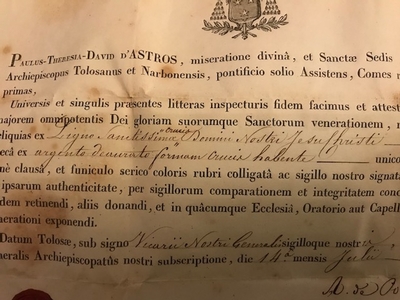 PAULUS-THERESIA-DAVID D'ASTROS, miseratione divinâ, et Sanctæ Sedis
Archiepiscopus Tolosanus et Narbonensis, pontificio solio Assistens, Comes
primas,
Universis et singulis præsentes litteras inspecturis fidem facimus et attest
majorem omnipotentis Dei gloriam suorumque Sanctorum venerationem,
eliquias ex Ligno sanctissimæ Crucis Domini Nostri Jesu Christi
ecâ ex argento deaurato formam crucis habente unico
nè clausâ, et funiculo serico coloris rubri colligatâ ac sigillo nostro signat
ipsarum authenticitate, per sigillorum comparationem et integritatem conc
dem retinendi, aliis donandi, et in quâcumque Ecclesiâ, Oratorio aut Capell
nerationi exponendi.
Datum Tolosæ, sub signo Vicarii Nostri Generalis sigilloque nostr
neralis Archiepiscopatûs nostri subscriptione, die 14ª mensis Julii